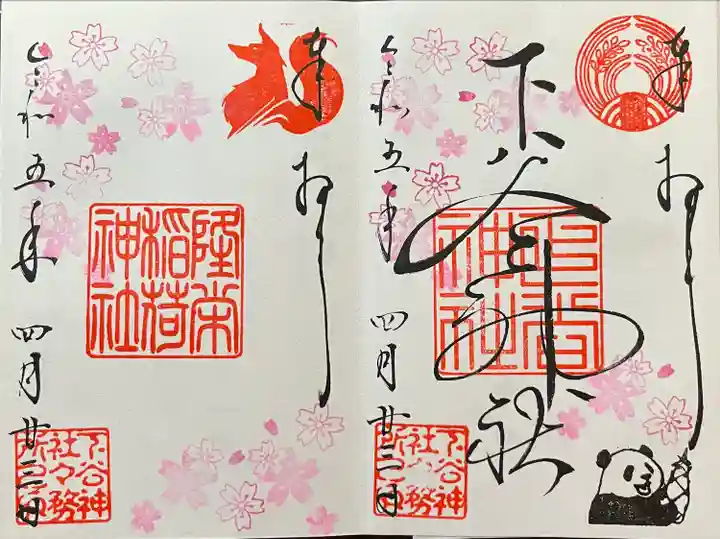 奉拝
下谷神社
下谷
神社
令和五年 四月廿三日
下谷神
社々務
所印
奉拝
隆栄
稲荷
神社
令和五年 四月廿三日
下谷神
社々務
所印